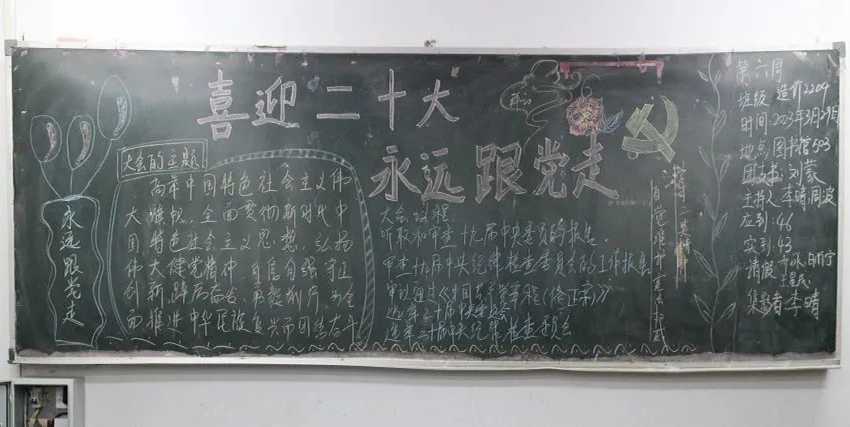 喜迎二十大
永远跟党走
永远跟党走
大会的主题
高举中国特色社会主义伟
大旗帜,全面贯彻新时代中
国特色社会主义思想,弘扬
伟大建党精神,自信自强、守正
创新,踔厉奋发、勇毅前行,为全
面推进中华民族复兴而团结奋斗
大会议程:
听取和审查十九届中央委员的报告.
审查十九届中央纪律检查委员会的工作报告
审议通过《中国共产党章程(修正案)》
选举二十届中央委员会
选举二十届中央纪律检查委员会
第六周
班级:造价2204
时间:2023年3月29日
地点:图书馆503
团支书:刘蒙
主持人:李晴 周波
应到:46
实到:43
请假:
集合者:李晴